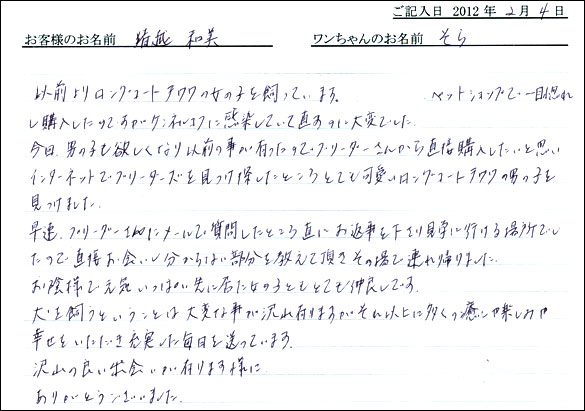 ご記入日 2012 年 2 月 4 日
お客様のお名前 和美 ワンちゃんのお名前 そら
以前よりロングコートチワワの女の子を飼っています。 ペットショップで一目惚れ
し購入したのですがケンネルコフに感染していて直すのに大変でした。
今回、男の子も欲しくなり以前の事が有ったのでブリーダーさんから直接購入したいと思い
インターネットでブリーダーズを見つけ探したところとても可愛いロングコートチワワの男の子を
見つけました。
早速、ブリーダーさんにメールで質問したところ直にお返事を下さり見学に行ける場所でし
たので直接お会いし分からない部分を教えて頂きその場で連れ帰りました。
お陰様で元気いっぱい先に居た女の子ともとても仲良しです。
犬を飼うということは大変な事が沢山有りますがそれ以上に多くの癒しや楽しみや
幸せをいただき充実した毎日を送っています。
沢山の良い出会いが有ります様に
ありがとうございました。